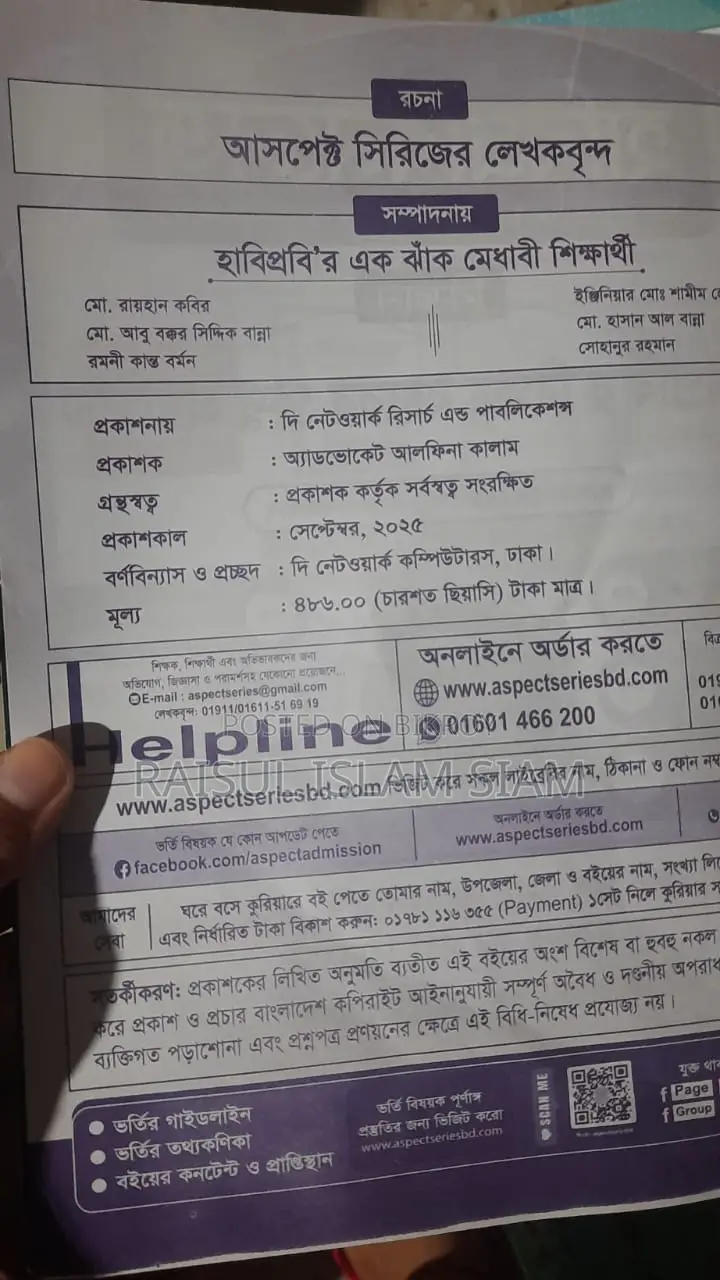 রচনা
আসপেক্ট সিরিজের লেখকবৃন্দ
সম্পাদনায়
হাবিপ্রবি'র এক ঝাঁক মেধাবী শিক্ষার্থী
মো. রায়হান কবির
মো. আবু বক্কর সিদ্দিক বান্না
রমনী কান্ত বর্মন
ইঞ্জিনিয়ার মোঃ শামীম
মো. হাসান আল বান্না
সোহানুর রহমান
প্রকাশনায় : দি নেটওয়ার্ক রিসার্চ এন্ড পাবলিকেশন্স
প্রকাশক : অ্যাডভোকেট আলফিনা কালাম
গ্রন্থস্বত্ব : প্রকাশক কর্তৃক সর্বস্বত্ব সংরক্ষিত
প্রকাশকাল : সেপ্টেম্বর, ২০২৫
বর্ণবিন্যাস ও প্রচ্ছদ : দি নেটওয়ার্ক কম্পিউটারস, ঢাকা।
মূল্য : ৪৮৬.০০ (চারশত ছিয়াসি) টাকা মাত্র।
শিক্ষক, শিক্ষার্থী এবং অভিভাবকদের জন্য
অভিযোগ, জিজ্ঞাসা ও পরামর্শসহ যেকোনো প্রয়োজনে...
E-mail : aspectseries@gmail.com
লেখকবৃন্দ: 01911/01611-51 69 19
Helpline
অনলাইনে অর্ডার করতে
www.aspectseriesbd.com
01601 466 200
POSTED ON
RAISUL ISLAM SIAM
www.aspectseriesbd.com ভিজিট করে সকল লাইব্রেরির নাম, ঠিকানা ও ফোন
ভর্তি বিষয়ক যে কোন আপডেট পেতে
facebook.com/aspectadmission
অনলাইনে অর্ডার করতে
www.aspectseriesbd.com
আমাদের
সেবা
ঘরে বসে কুরিয়ারে বই পেতে তোমার নাম, উপজেলা, জেলা ও বইয়ের নাম, সংখ্যা
এবং নির্ধারিত টাকা বিকাশ করুন: ০১৯৮১ ১১৬ ৩৫৫ (Payment) ১সেট নিলে কুরিয়ার
সতর্কীকরণ: প্রকাশকের লিখিত অনুমতি ব্যতীত এই বইয়ের অংশ বিশেষ বা হুবহু নকল
করে প্রকাশ ও প্রচার বাংলাদেশ কপিরাইট আইনানুযায়ী সম্পূর্ণ অবৈধ ও দণ্ডনীয় অপরাধ
ব্যক্তিগত পড়াশোনা এবং প্রশ্নপত্র প্রণয়নের ক্ষেত্রে এই বিধি-নিষেধ প্রযোজ্য নয়।
ভর্তির গাইডলাইন
ভর্তির তথ্যকণিকা
বইয়ের কনটেন্ট ও প্রাপ্তিস্থান
ভর্তি বিষয়ক পূর্ণাঙ্গ
প্রস্তুতির জন্য ভিজিট করো
www.aspectseriesbd.com
SCAN ME
যুক্ত
Page
Group